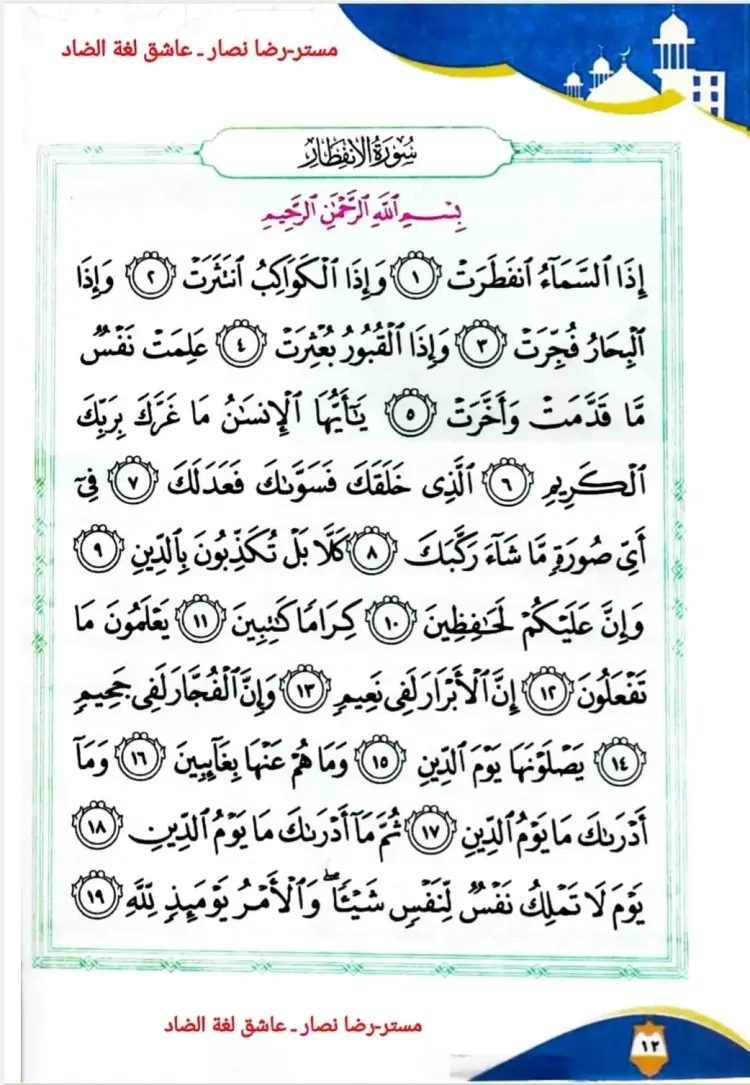 مستر-رضا نصار ـ عاشق لغة الضاد
سُورَةُ الِانفِطَارِ
بِسْمِ ٱللَّهِ ٱلرَّحْمَٰنِ ٱلرَّحِيمِ
إِذَا ٱلسَّمَآءُ ٱنفَطَرَتْ ١ وَإِذَا ٱلْكَوَاكِبُ ٱنتَثَرَتْ ٢ وَإِذَا
ٱلْبِحَارُ فُجِّرَتْ ٣ وَإِذَا ٱلْقُبُورُ بُعْثِرَتْ ٤ عَلِمَتْ نَفْسٌ
مَّا قَدَّمَتْ وَأَخَّرَتْ ٥ يَٰٓأَيُّهَا ٱلْإِنسَٰنُ مَا غَرَّكَ بِرَبِّكَ
ٱلْكَرِيمِ ٦ ٱلَّذِى خَلَقَكَ فَسَوَّىٰكَ فَعَدَلَكَ ٧ فِىٓ
أَىِّ صُورَةٍ مَّا شَآءَ رَكَّبَكَ ٨ كَلَّا بَلْ تُكَذِّبُونَ بِٱلدِّينِ ٩
وَإِنَّ عَلَيْكُمْ لَحَٰفِظِينَ ١٠ كِرَامًا كَٰتِبِينَ ١١ يَعْلَمُونَ مَا
تَفْعَلُونَ ١٢ إِنَّ ٱلْأَبْرَارَ لَفِى نَعِيمٍ ١٣ وَإِنَّ ٱلْفُجَّارَ لَفِى جَحِيمٍ
١٤ يَصْلَوْنَهَا يَوْمَ ٱلدِّينِ ١٥ وَمَا هُمْ عَنْهَا بِغَآئِبِينَ ١٦ وَمَآ
أَدْرَىٰكَ مَا يَوْمُ ٱلدِّينِ ١٧ ثُمَّ مَآ أَدْرَىٰكَ مَا يَوْمُ ٱلدِّينِ ١٨
يَوْمَ لَا تَمْلِكُ نَفْسٌ لِّنَفْسٍ شَيْـًٔا ۖ وَٱلْأَمْرُ يَوْمَئِذٍ لِّلَّهِ ١٩
مستر-رضا نصار ـ عاشق لغة الضاد
١٢